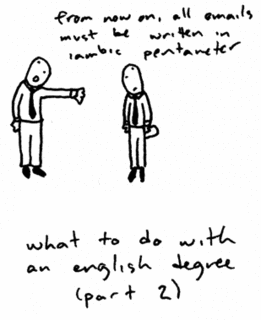 from now on, all emails
must be written in
iambic pentameter
what to do with
an english degree
(part 2)